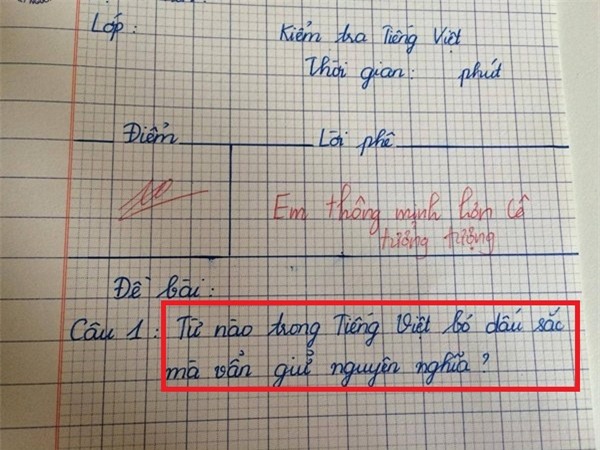 Lớp:
Kiểm tra Tiếng Việt
Thời gian: phút
Điểm
Lời phê
10
Em thông minh hơn cô
tưởng tượng
Đề bài:
Câu 1: Từ nào trong Tiếng Việt bỏ dấu sắc
mà vẩn giữ nguyên nghĩa?